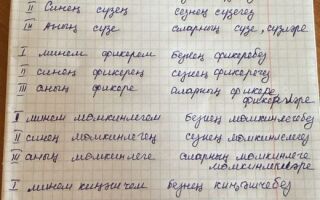 II Синең сүзең сезнең сүзегез
III Аның сүзе аларның сүзе, сүзләре
I минем фикерем безнең фикеребез
II синең фикерең сезнең фикерегез
III аның фикере аларның фикере
фикерләре
I минем мөмкинлегем безнең мөмкинлегебез
II синең мөмкинлегең сезнең мөмкинлегегез
III аның мөмкинлеге аларның мөмкинлеге
мөмкинлекләре
I минем киңәшем безнең киңәшебез